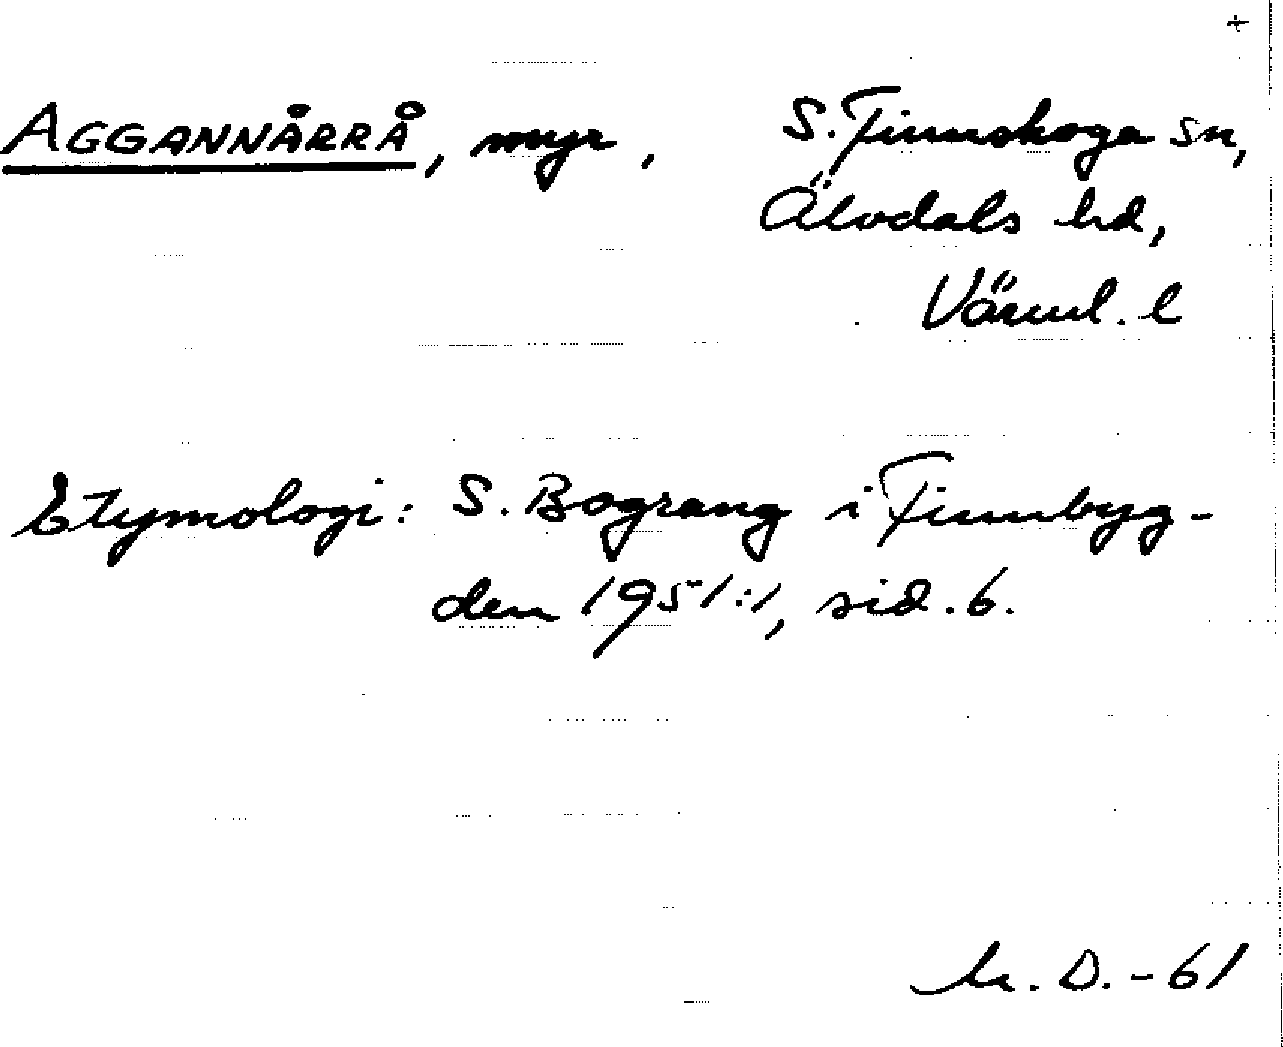 +
AGGANNÅRRÅ, myr, S. Finnskoga sn,
Älvdals hd,
Värml. l
Etymologi: S. Bograng i Finnbyg-
den 1951:1, sid. 6.
D. -61